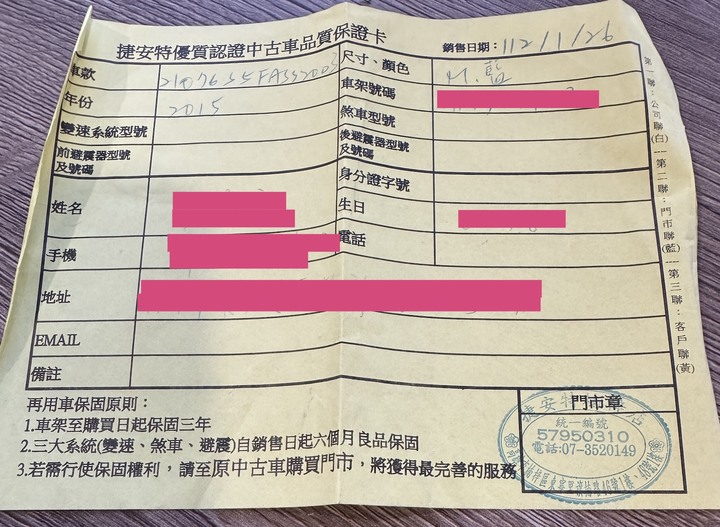 捷安特優質認證中古車品質保證卡
銷售日期：112/1/26
車款
尺寸、顏色 M.藍
年份 2015
車架號碼
變速系統型號
煞車型號
前避震器型號及號碼
後避震器型號及號碼
身分證字號
姓名
生日
手機
電話
地址
EMAIL
備註
再用車保固原則：
1.車架至購買日起保固三年
2.三大系統(變速、煞車、避震)自銷售日起六個月良品保固
3.若需行使保固權利，請至原中古車購買門市，將獲得最完善的服務
門市章
統一編號
57950310
電話:07-3520149
第一聯：公司聯(白)---第二聯：門市聯(藍)---第三聯：客戶聯(黃)